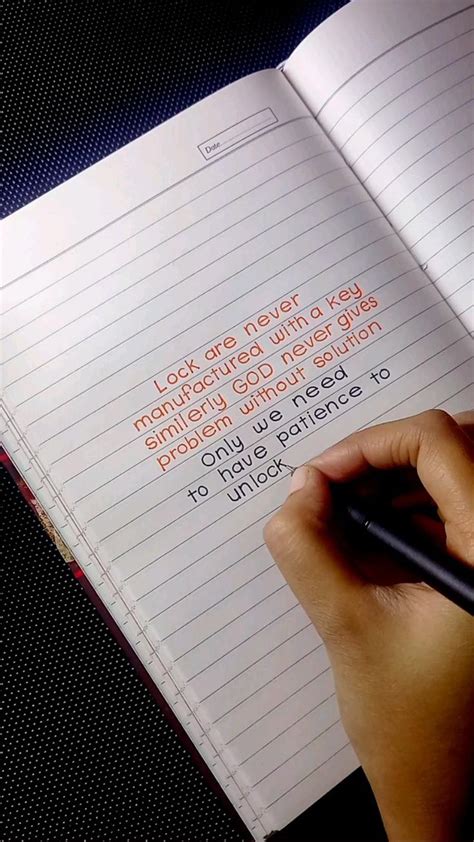 Date
Lock are never
manufactured with a key
similerly GOD never gives
problem without solution
Only we need
to have patience to
unlock